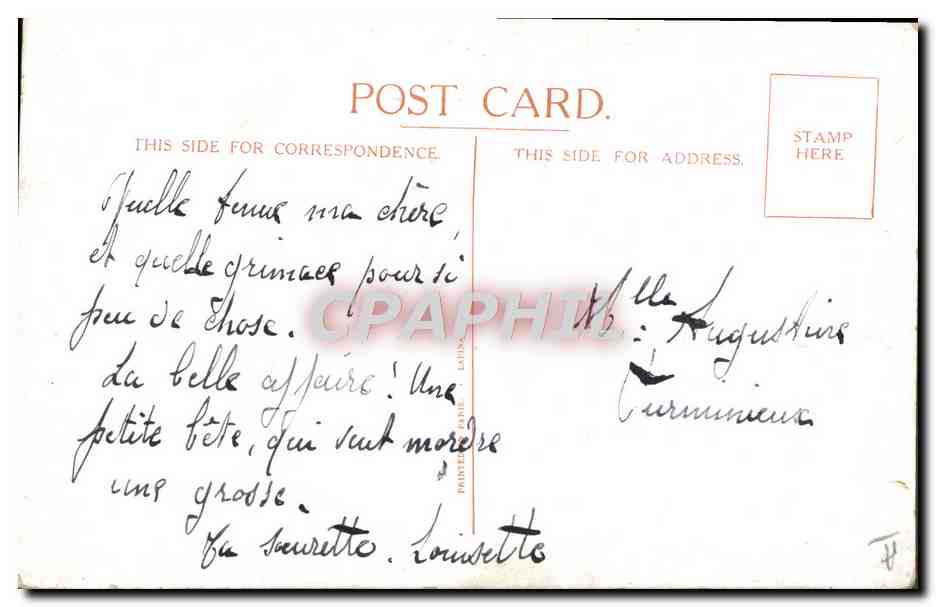 POST CARD.
THIS SIDE FOR CORRESPONDENCE.
THIS SIDE FOR ADDRESS.
STAMP
HERE
Quelle tenue ma chère,
et quelle grimace pour si
peu de chose.
La belle affaire! Une
petite bête, qui veut mordre
une grosse.
Ta sœurette. Louisette
Mlle Augustine
CPAPHIL
PRINTED PARIS. LAPINA